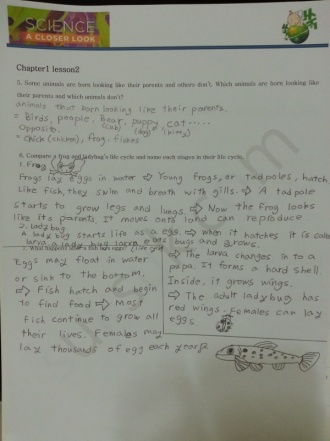 SCIENCE
A CLOSER LOOK
Chapter1 lesson2
5. Some animals are born looking like their parents and others don't. Which animals are born looking like
their parents and which animals don't?
animals that born looking like their parents.
= Birds, people, Bear, puppy cat.....
(cub) (dog) (kitty)
Opposite.
= chick (chicken), frog. fishes
6. Compare a frog and ladybug's life cycle and name each stages in their life cycle.
1. Frog
Frogs lay eggs in water ⇒ Young frogs, or tadpoles, hatch.
Like fish, they swim and breath with gills. ⇒ A tadpole
starts to grow legs and lungs. ⇒ Now the frog looks
like its parents. It moves onto land can reproduce
2. Ladybug
A lady bug starts life as a egg. ⇒ when it hatches it is called
larva a lady bug larva eats bugs and grows.
7. What happens during a fish's life cycle?
Eggs may float in water
or sink to the bottom.
⇒ Fish hatch and begin
to find food ⇒ Most
fish continue to grow all
their lives. Females may
lay thousands of egg each year.
⇒ The larva changes in to a
pupa. It forms a hard shell
Inside, it grows wings.
⇒ The adult ladybug has
red wings. Females can lay
eggs.